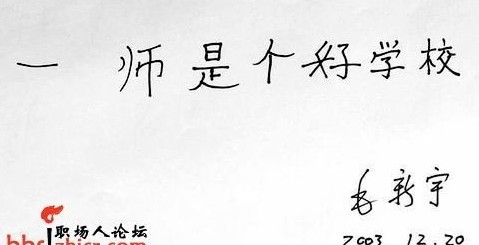 一师是个好学校
毛新宇
2003.12.20
职场人论坛